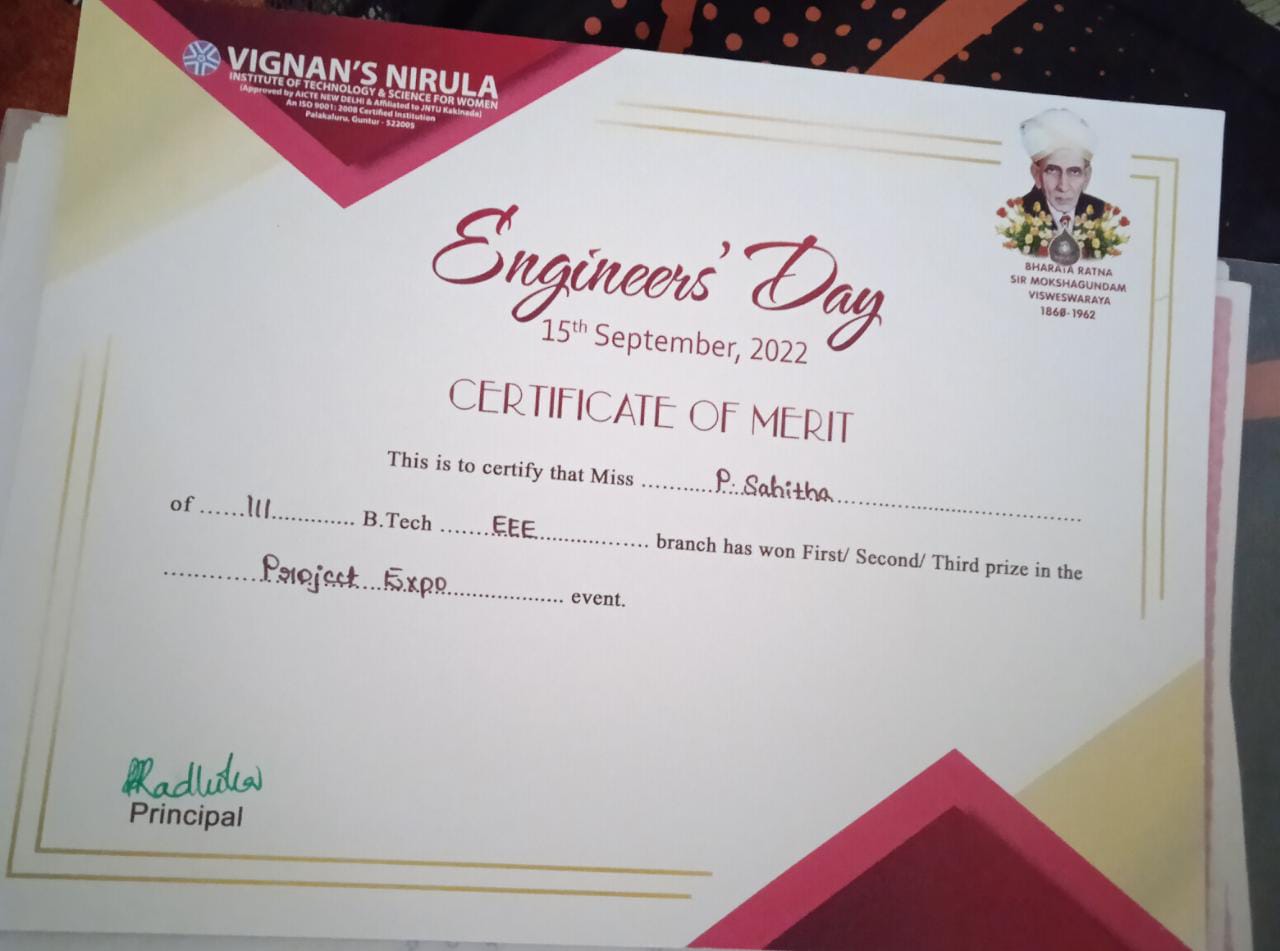 VIGNAN'S NIRULA
INSTITUTE OF TECHNOLOGY & SCIENCE FOR WOMEN
(Approved by AICTE NEW DELHI & Affiliated to JNTU Kakinada)
An ISO 9001: 2008 Certified Institution
Palakaluru, Guntur - 522005
BHARATA RATNA
SIR MOKSHAGUNDAM
VISWESWARAYA
1860-1962
Engineers' Day
15th September, 2022
CERTIFICATE OF MERIT
This is to certify that Miss .......... P. Sahitha ..............................
of ...... III ............. B.Tech ....... EEE ................. branch has won First/ Second/ Third prize in the
............. Project Expo .................... event.
Radhika
Principal